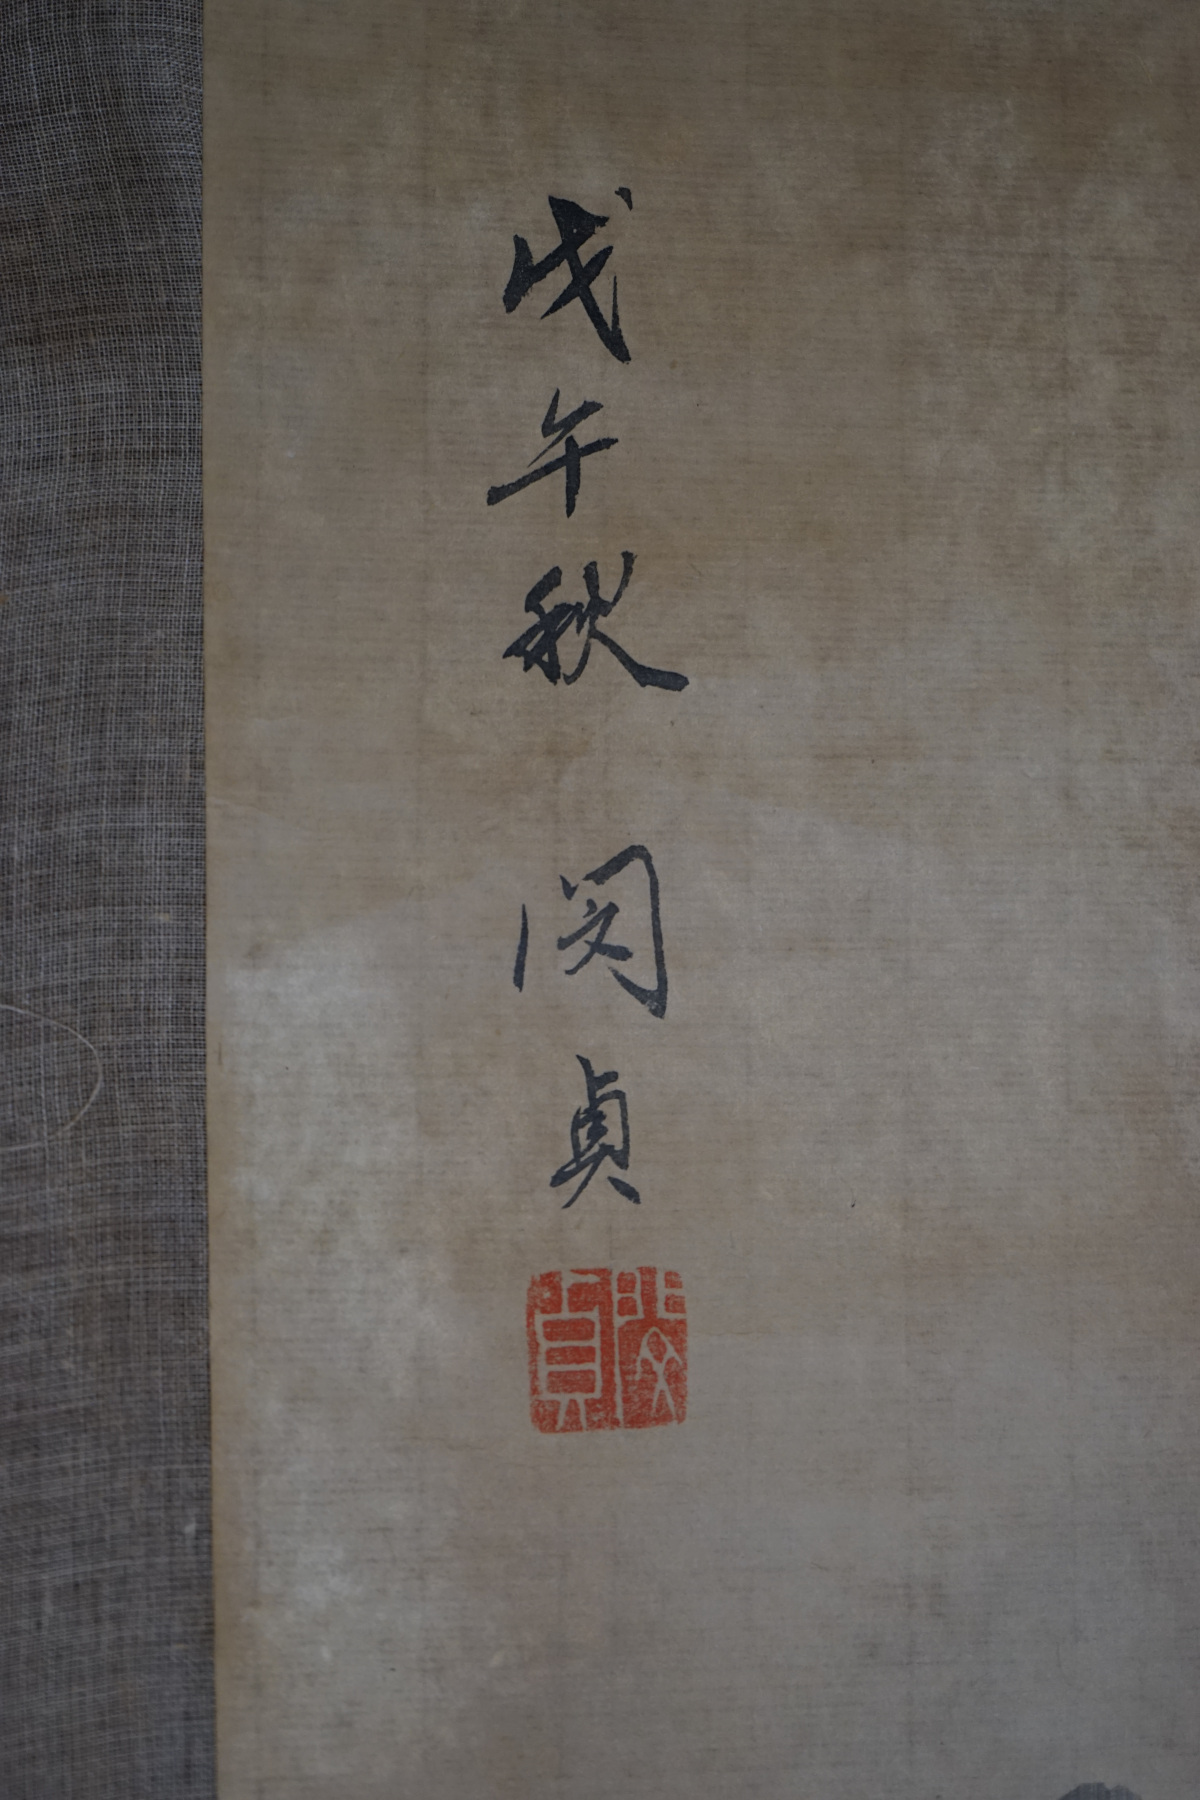 戊午秋 閔貞